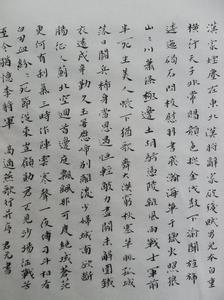 漢家煙塵在東北漢將辭家破殘賊男兒本自重
橫行天子非常賜顏色摐金伐鼓下榆關旌旆
逶迤碣石間校尉羽書飛瀚海單于獵火照狼
山山川蕭條極邊土胡騎憑陵雜風雨戰士軍前
半死生美人帳下猶歌舞大漠窮秋塞草腓孤城
落日鬥兵稀身當恩遇恆輕敵力盡關山未解圍鐵
衣遠戍辛勤久玉箸應啼別離後少婦城南欲斷
腸征人薊北空回首邊庭飄颻那可度絕域蒼茫
更何有殺氣三時作陣雲寒聲一夜傳刁斗相看
白刃血紛紛死節從來豈顧勳君不見沙場征戰苦
至今猶憶李將軍 高適燕歌行 書